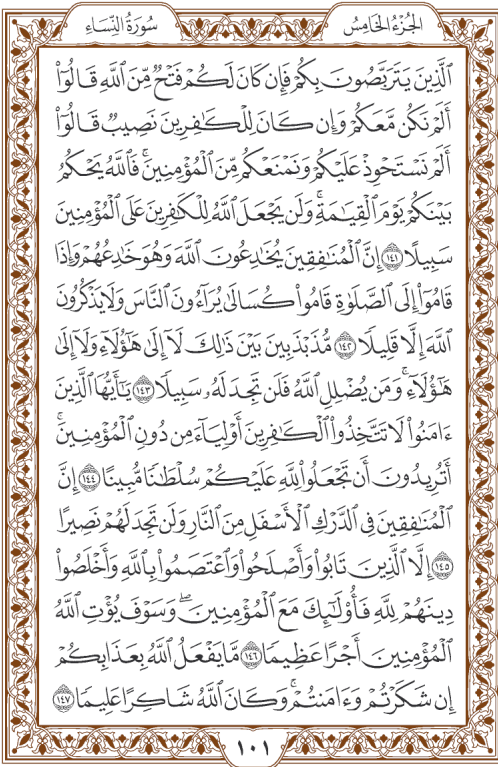 الجُزْءُ الخَامِسُ
سُورَةُ النِّسَاءِ
ٱلَّذِينَ يَتَرَبَّصُونَ بِكُمْ فَإِن كَانَ لَكُمْ فَتْحٌ مِّنَ ٱللَّهِ قَالُوٓا۟
أَلَمْ نَكُن مَّعَكُمْ وَإِن كَانَ لِلْكَـٰفِرِينَ نَصِيبٌ قَالُوٓا۟
أَلَمْ نَسْتَحْوِذْ عَلَيْكُمْ وَنَمْنَعْكُم مِّنَ ٱلْمُؤْمِنِينَ ۚ فَٱللَّهُ يَحْكُمُ
بَيْنَكُمْ يَوْمَ ٱلْقِيَـٰمَةِ ۗ وَلَن يَجْعَلَ ٱللَّهُ لِلْكَـٰفِرِينَ عَلَى ٱلْمُؤْمِنِينَ
سَبِيلًا ١٤١ إِنَّ ٱلْمُنَـٰفِقِينَ يُخَـٰدِعُونَ ٱللَّهَ وَهُوَ خَـٰدِعُهُمْ وَإِذَا
قَامُوٓا۟ إِلَى ٱلصَّلَوٰةِ قَامُوا۟ كُسَالَىٰ يُرَآءُونَ ٱلنَّاسَ وَلَا يَذْكُرُونَ
ٱللَّهَ إِلَّا قَلِيلًا ١٤٢ مُّذَبْذَبِينَ بَيْنَ ذَٰلِكَ لَآ إِلَىٰ هَـٰٓؤُلَآءِ وَلَآ إِلَىٰ
هَـٰٓؤُلَآءِ ۚ وَمَن يُضْلِلِ ٱللَّهُ فَلَن تَجِدَ لَهُۥ سَبِيلًا ١٤٣ يَـٰٓأَيُّهَا ٱلَّذِينَ
ءَامَنُوا۟ لَا تَتَّخِذُوا۟ ٱلْكَـٰفِرِينَ أَوْلِيَآءَ مِن دُونِ ٱلْمُؤْمِنِينَ ۚ
أَتُرِيدُونَ أَن تَجْعَلُوا۟ لِلَّهِ عَلَيْكُمْ سُلْطَـٰنًا مُّبِينًا ١٤٤ إِنَّ
ٱلْمُنَـٰفِقِينَ فِى ٱلدَّرْكِ ٱلْأَسْفَلِ مِنَ ٱلنَّارِ وَلَن تَجِدَ لَهُمْ نَصِيرًا
١٤٥ إِلَّا ٱلَّذِينَ تَابُوا۟ وَأَصْلَحُوا۟ وَٱعْتَصَمُوا۟ بِٱللَّهِ وَأَخْلَصُوا۟
دِينَهُمْ لِلَّهِ فَأُو۟لَـٰٓئِكَ مَعَ ٱلْمُؤْمِنِينَ ۖ وَسَوْفَ يُؤْتِ ٱللَّهُ
ٱلْمُؤْمِنِينَ أَجْرًا عَظِيمًا ١٤٦ مَّا يَفْعَلُ ٱللَّهُ بِعَذَابِكُمْ
إِن شَكَرْتُمْ وَءَامَنتُمْ ۚ وَكَانَ ٱللَّهُ شَاكِرًا عَلِيمًا ١٤٧
١٠١